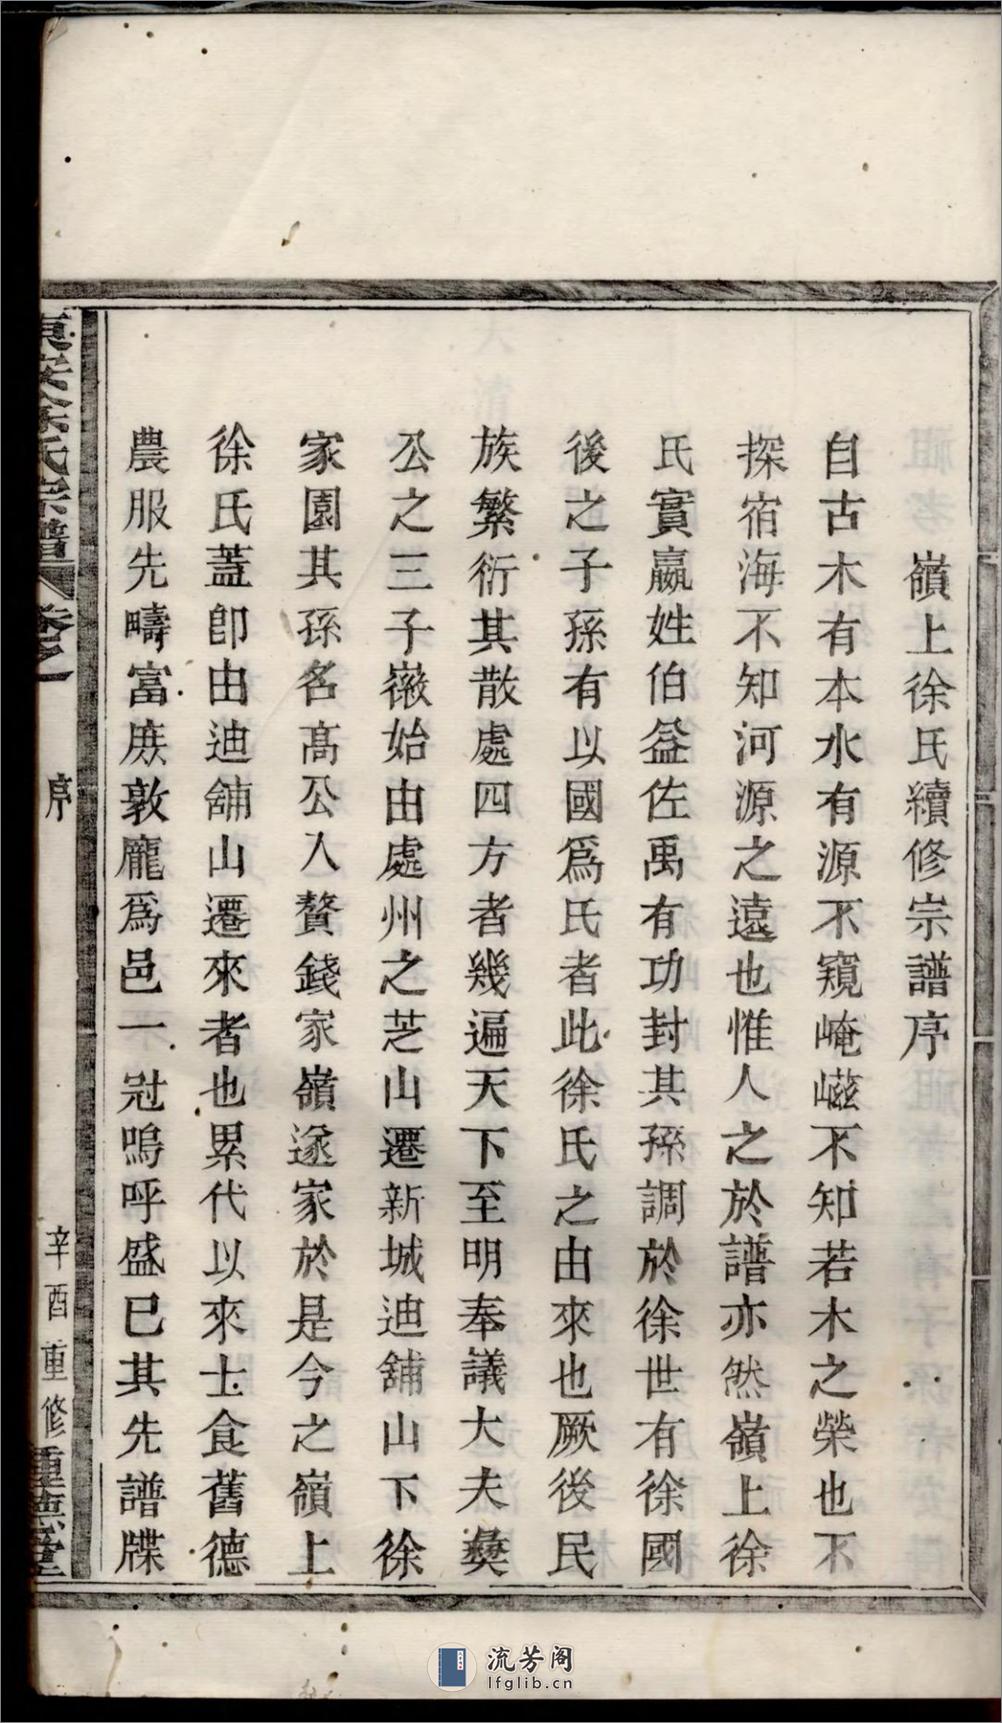 嶺上徐氏續修宗譜序
自古木有本水有源不窺崦嵫不知若木之榮也不
探宿海不知河源之遠也惟人之於譜亦然嶺上徐
氏實嬴姓伯益佐禹有功封其孫調於徐世有徐國
後之子孫有以國爲氏者此徐氏之由來也厥後民
族繁衍其散處四方者幾遍天下至明奉議大夫彝
公之三子徽始由處州之芝山遷新城迪舖山下徐
家園其孫名高公入贅錢家嶺遂家於是今之嶺上
徐氏蓋卽由迪舖山遷來者也累代以來士食舊德
農服先疇富庶敦龐爲邑一冠嗚呼盛已其先譜牒
東安徐氏宗譜
卷之一
序
辛酉重修
流芳阁
lfglib.cn